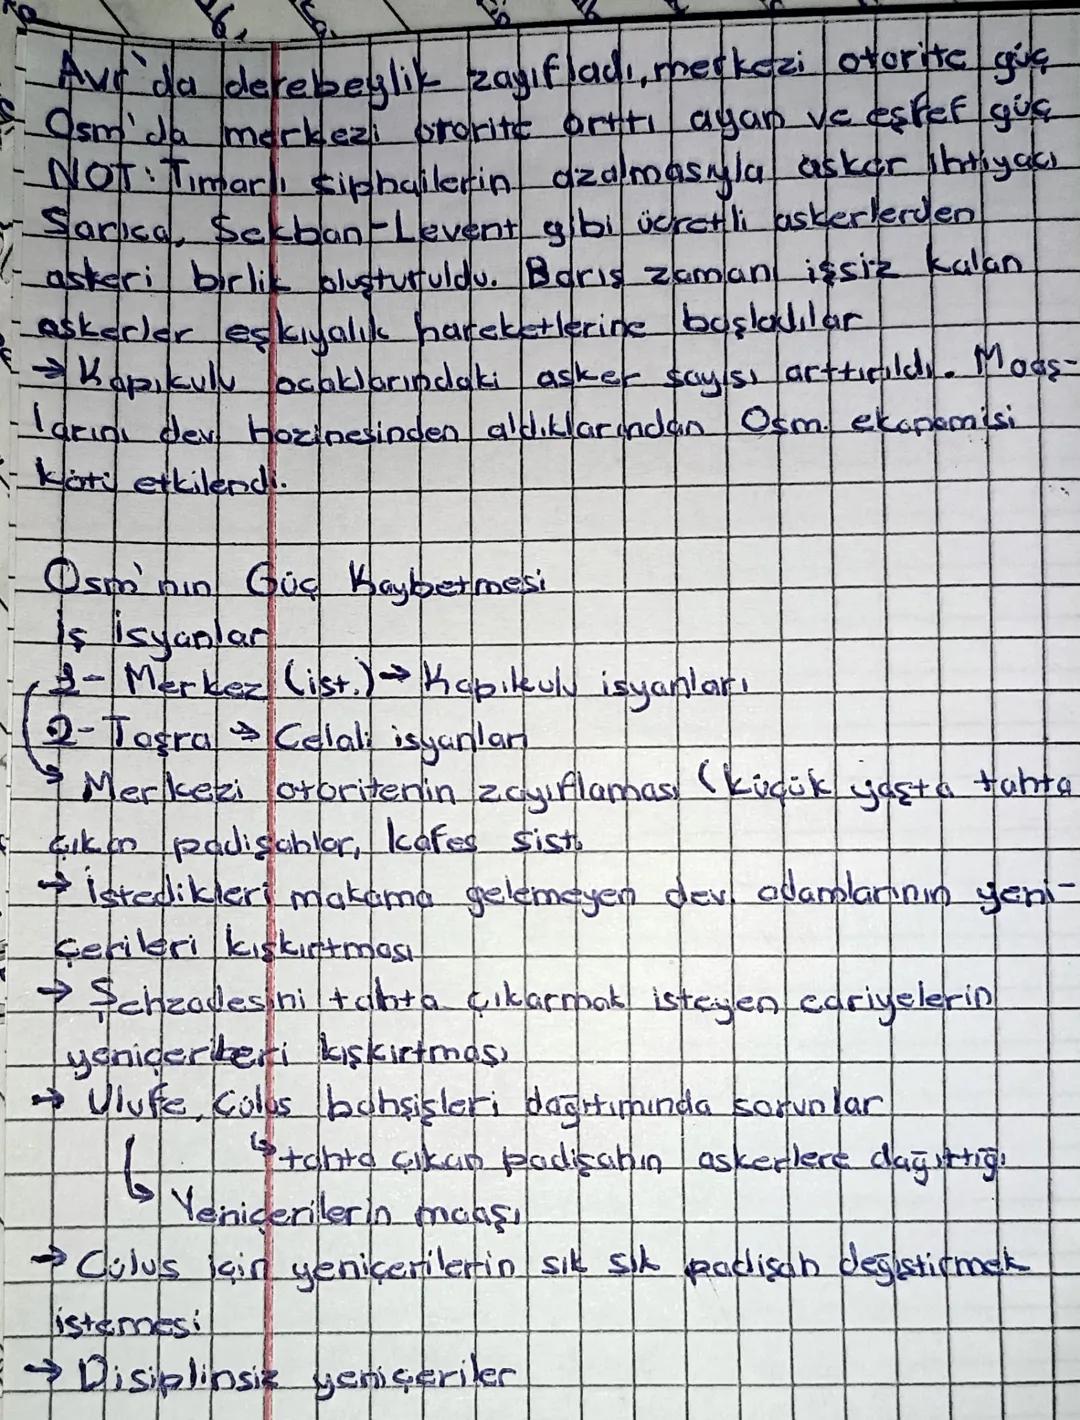 Avr'da derebeylik zayıfladı, merkezi otorite güç
Osm'da merkezi otorite arttı ayan ve eşref güç
NOT: Tımarlı siphailerin azalmasıyla asker ihtiyacı
Sarıca, Sekban-Levent gibi ücretli askerlerden
askeri birlik oluşturuldu. Barış zamanı işsiz kalan
askerler eşkıyalık hareketlerine başladılar
→ Kapıkulu ocaklarındaki asker sayısı arttırıldı. Maaş-
larını dev hazinesinden aldıklarından Osm. ekonomisi
kötü etkilendi.
Osm'nın Güç Kaybetmesi
İş İsyanlar
1- Merkez (ist.) → Kapıkulu isyanları
2- Taşra → Celali isyanları
→ Merkezi otoritenin zayıflaması (küçük yaşta tahta
çıkan padişahlar, kafes sist.
→ İstedikleri makama gelemeyen dev. adamlarının yeni-
çerileri kışkırtması
→ Şehzadesini tahta çıkarmak isteyen cariyelerin
yeniçerileri kışkırtması
→ Ulufe, Cülus bahşişleri dağıtımında sorunlar
↳ tahta çıkan padişahın askerlere dağıttığı
↳ Yeniçerilerin maaşı
→ Cülus için yeniçerilerin sık sık padişah değiştirmek
istemesi
→ Disiplinsiz yeniçeriler